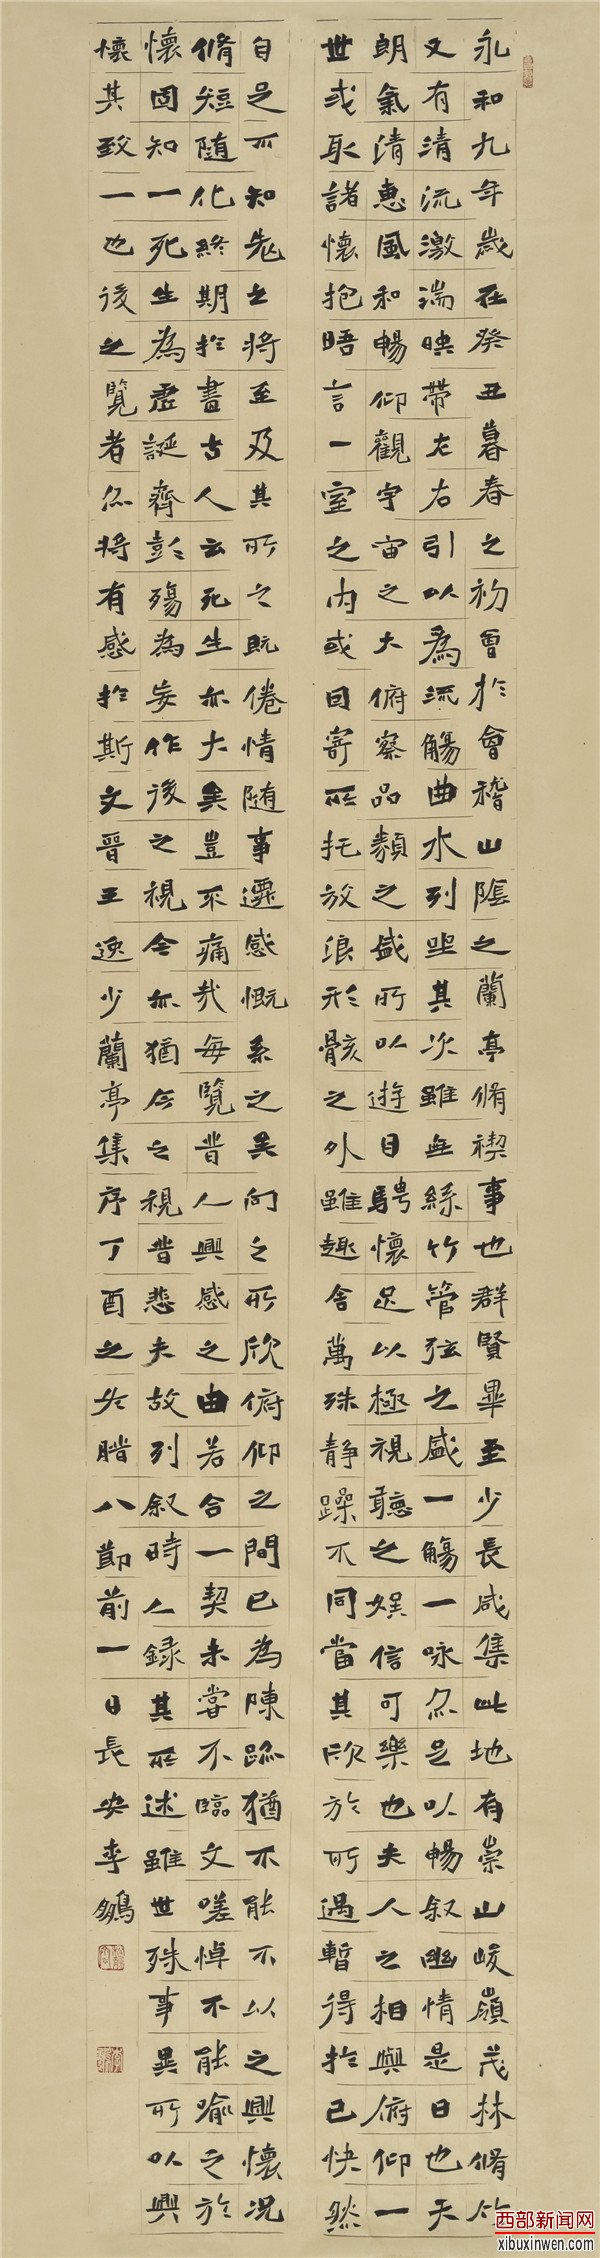 永和九年歲在癸丑暮春之初會於會稽山陰之蘭亭脩禊事也群賢畢至少長咸集此地有崇山峻嶺茂林脩竹
又有清流激湍映帶左右引以為流觴曲水列坐其次雖無絲竹管弦之盛一觴一咏亦足以暢叙幽情是日也天
朗氣清惠風和暢仰觀宇宙之大俯察品類之盛所以遊目騁懷足以極視聽之娛信可樂也夫人之相與俯仰一
世或取諸懷抱晤言一室之內或因寄所托放浪形骸之外雖趣舍萬殊静躁不同當其欣於所遇暫得於己快然
自足不知老之將至及其所之既倦情隨事遷感慨系之矣向之所欣俯仰之間已為陳跡猶不能不以之興懷況
脩短隨化終期於盡古人云死生亦大矣豈不痛哉每覽昔人興感之由若合一契未嘗不臨文嗟悼不能喻之於
懷固知一死生為虛誕齊彭殤為妄作後之視今亦猶今之視昔悲夫故列叙時人録其所述雖世殊事異所以興
懷其致一也後之覽者亦將有感於斯文晉王逸少蘭亭集序丁酉之冬腊八節前一日長安李
西部新闻网
xibuxinwen.com